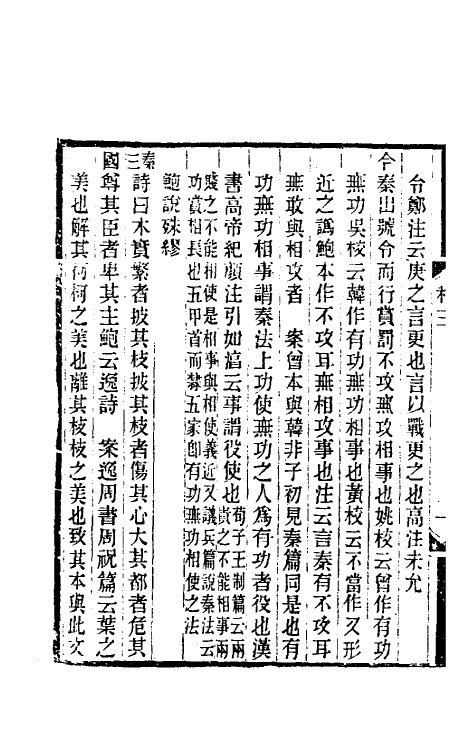 台鄭注云庚之言更也言以戰更之也高注未允
今秦出號令而行賞罰不攻無攻相事也姚校云曾作有功
無功吳校云韓作有功無功相事也黃校云不當作又形
近之譌鮑本作不攻耳無相攻事也注云言秦有不攻耳
無敢與相攻者　案曾本與韓非子初見秦篇同是也有
功無功相事謂秦法上功使無功之人爲有功者役也漢
書高帝紀顏注引如淳云事謂役使也荀子王制篇云兩貴之不能相事兩
賤之不能相使是相事與相使義近又議兵篇說秦法云功賞相長也五甲首而隸五家卽有功無功相使之法
鮑說殊繆
秦三
詩曰木實繁者披其枝披其枝者傷其心大其都者危其
國尊其臣者卑其主鮑云逸詩　案逸周書周祝篇云葉之
美也解其柯柯之美也離其枝枝之美也致其本與此文